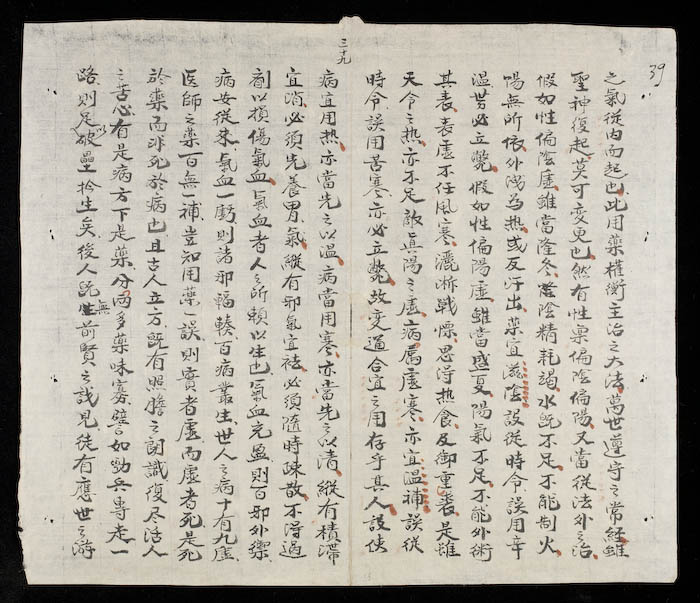 三十九
39
之氣從内而起也此用藥權衡主治之大法萬世遵守之常經雖
聖神復起莫可變更也然有性稟偏陰偏陽又當從法外之治
假如性偏陰虛雖當隆冬陰精耗竭水既不足不能制火
陽無所依外洩為熱或反汗出藥宜滋陰設從時令誤用辛
温势必立斃假如性偏陽虛雖當盛夏陽氣不足不能外衛
其表表虛不任風寒灑淅戰慄思得熱食及御重裘是雖
天令之熱亦不足敵真陽之虛病屬虛寒亦宜温補誤從
時令誤用苦寒亦必立斃故變通合宜之用存乎其人設使
病宜用热亦當先之以温病當用寒亦當先之以清縱有積滯
宜消必須先養胃氣縱有邪氣宜祛必須隨時疎散不得過
劑以損傷氣血氣血者人之所賴以生也氣血充盈則百邪外禦
病安從来氣血一虧則諸邪輻輳百病叢生世人之病十有九虛
医師之藥百無一補豈知用藥一誤則實者虛而虛者死是死
於藥而非死於病也且古人立方既有照膽之朗識復尽活人
之苦心有是病方下是藥分兩多藥味寡譬如勁兵専走一
路則足以破壘擒生矣後人既無前賢之識見徒有應世之游